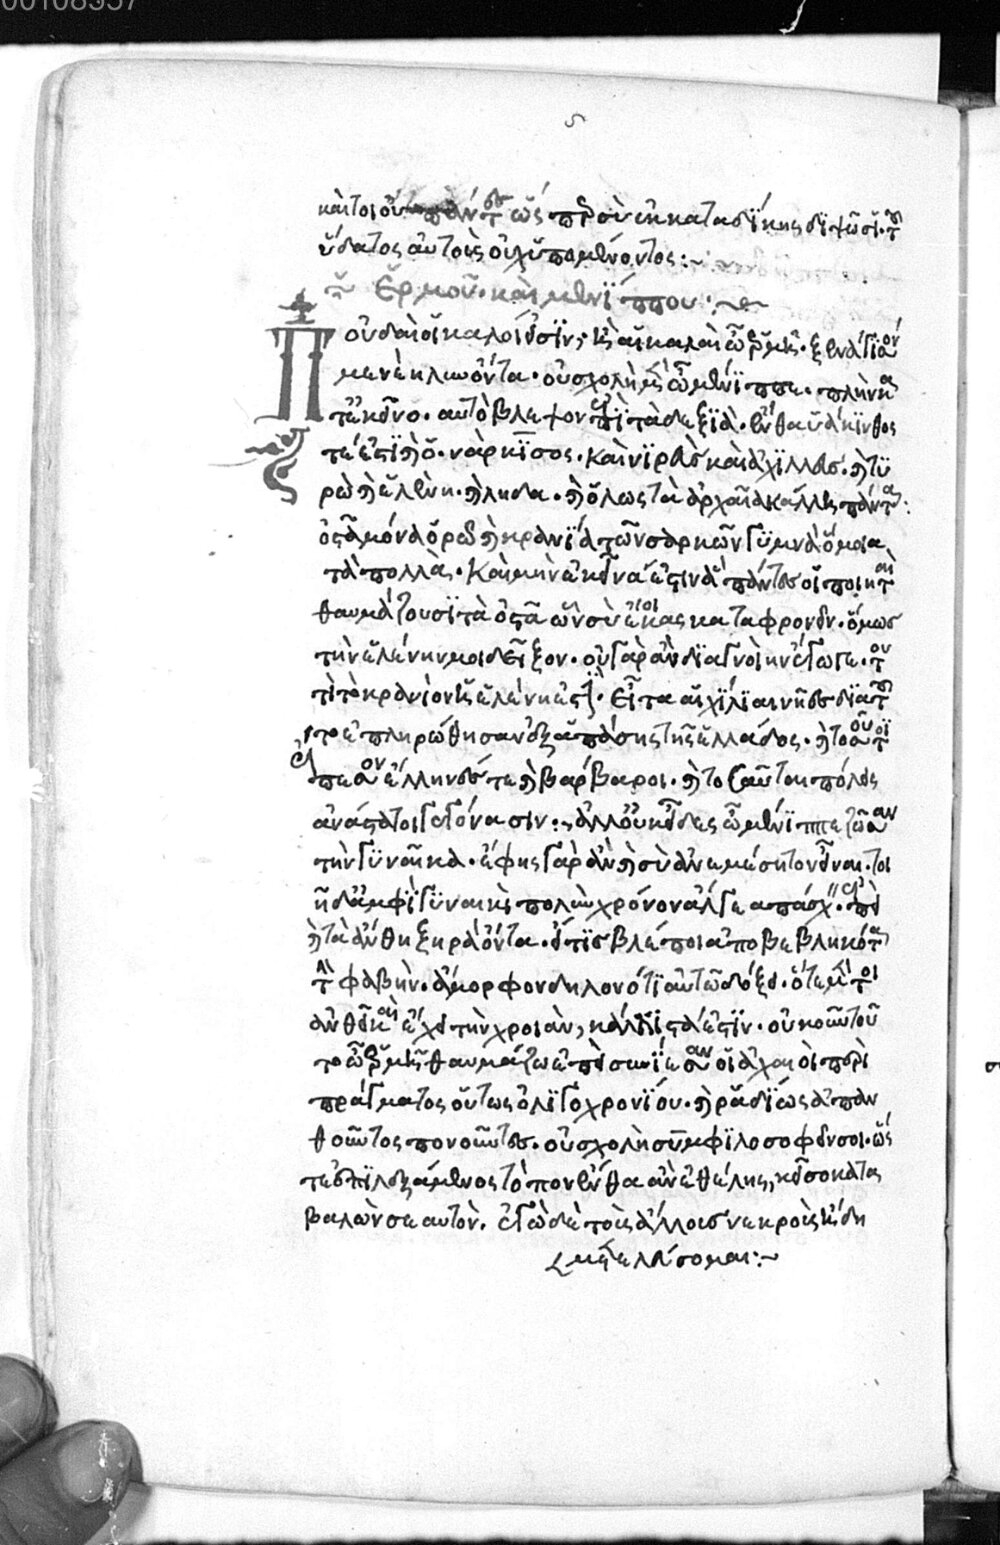 00108957
ς
καίτοι οὐ πάντες ὥσπερ σὺ ἐκ καταδίκης διψῶσι τοῦ
ὕδατος αὐτοὺς οὐχ ὑπομένοντος:~
Ἑρμοῦ. καὶ μενίππου:~
Ποῦ δαὶ οἱ καλοί εἰσιν, καὶ αἱ καλαὶ ὦ ἑρμῆ. ξενάγησον
με νέηλυν ὄντα. οὐ σχολή μοι ὦ μένιππε. πλὴν κατ
ἐκεῖνο αὐτὸ βλέψον ἐπὶ τὰ δεξϊὰ. ἔνθα ὑάκινθος
τέ ἐστϊ καὶ ὁ νάρκϊσος. καὶ νϊρεὺς καὶ ἀχϊλλεὺς. καὶ τυ
ρὼ καὶ ἑλένη. καὶ λήδα. καὶ ὅλως τὰ ἀρχαῖα κάλλη πάντα:
ὀστᾶ μόνα ὁρῶ καὶ κρανϊία τῶν σαρκῶν γϋμνὰ ὅμοια
τὰ πολλὰ. καὶ μὴν ἐκεῖνά ἐστιν ἃ πάντες οἱ ποιηταὶ
θαυμάζουσϊ τὰ ὀστᾶ ὧν σὺ ἔοικας καταφρονεῖν. ὅμως
τὴν ἑλένην μοι δεῖξον. οὐ γὰρ ἂν διαγνοίην ἔγωγε. του
τὶ τὸ κρανίον ἡ ἑλένη ἐστὶ. εἶτα αἱ χϊλϊαι νῆες διὰ τοῦ
το ἐπληρώθησαν ἐξ ἁπάσης τῆς ἑλλάδος. καὶ τοσοῦτοι
ἔπεσον ἕλληνές τε καὶ βάρβαροι. καὶ τοσαῦται πόλεις
ἀνάστατοι γεγόνασιν:, ἀλλ' οὐκ εἶδες ὦ μένϊππε ζῶσαν
τὴν γϋναῖκα. ἔφης γὰρ ἂν καὶ σὺ ἀνεμέσητον εἶναι. τοι
ῇ δ' ἀμφὶ γϋναικὶ πολὺν χρόνον ἄλγεα πάσχειν. ἐπεὶ
καὶ τὰ ἄνθη ξηρὰ ὄντα. εἴ τϊς βλέποι ἀποβεβληκότα
τὴν βαφὴν. ἄμορφον δηλονότϊ αὐτῶ δόξει. ὅτε μέντοι
ἀνθεῖ καὶ ἔχει τὴν χροιὰν, κάλλιστά ἐστϊν. οὐκοῦν τοῦ
το ὦ ἑρμῆ θαυμάζω εἰ μὴ συνίεσαν οἱ ἀχαιοὶ περὶ
πράγματος οὕτως ὀλϊγοχρονϊίου. καὶ ῥᾳδϊίως ἀπαν
θοῦντος πονοῦντες. οὐ σχολή σϋμφϊλοσοφεῖν σοι. ὥσ
τε ἐπϊλεξάμενος τόπον ἔνθα ἂν ἐθέλης, κεῖσο κατα
βαλὼν σεαυτὸν. ἐγὼ δὲ τοὺς ἄλλους νεκροὺς ἤδη
μετελεύσομαι:~